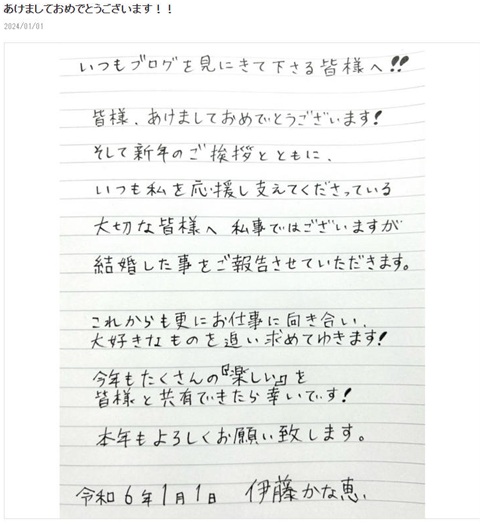 あけましておめでとうございます！！
2024/01/01
いつもブログを見にきて下さる皆様へ!!
皆様、あけましておめでとうございます!
そして新年のご挨拶とともに、
いつも私を応援し支えてくださっている
大切な皆様へ 私事ではございますが
結婚した事をご報告させていただきます。
これからも更にお仕事に向き合い、
大好きなものを追い求めてゆきます!
今年もたくさんの『楽しい』を
皆様と共有できたら幸いです!
本年もよろしくお願い致します。
令和6年1月1日 伊藤かな恵.